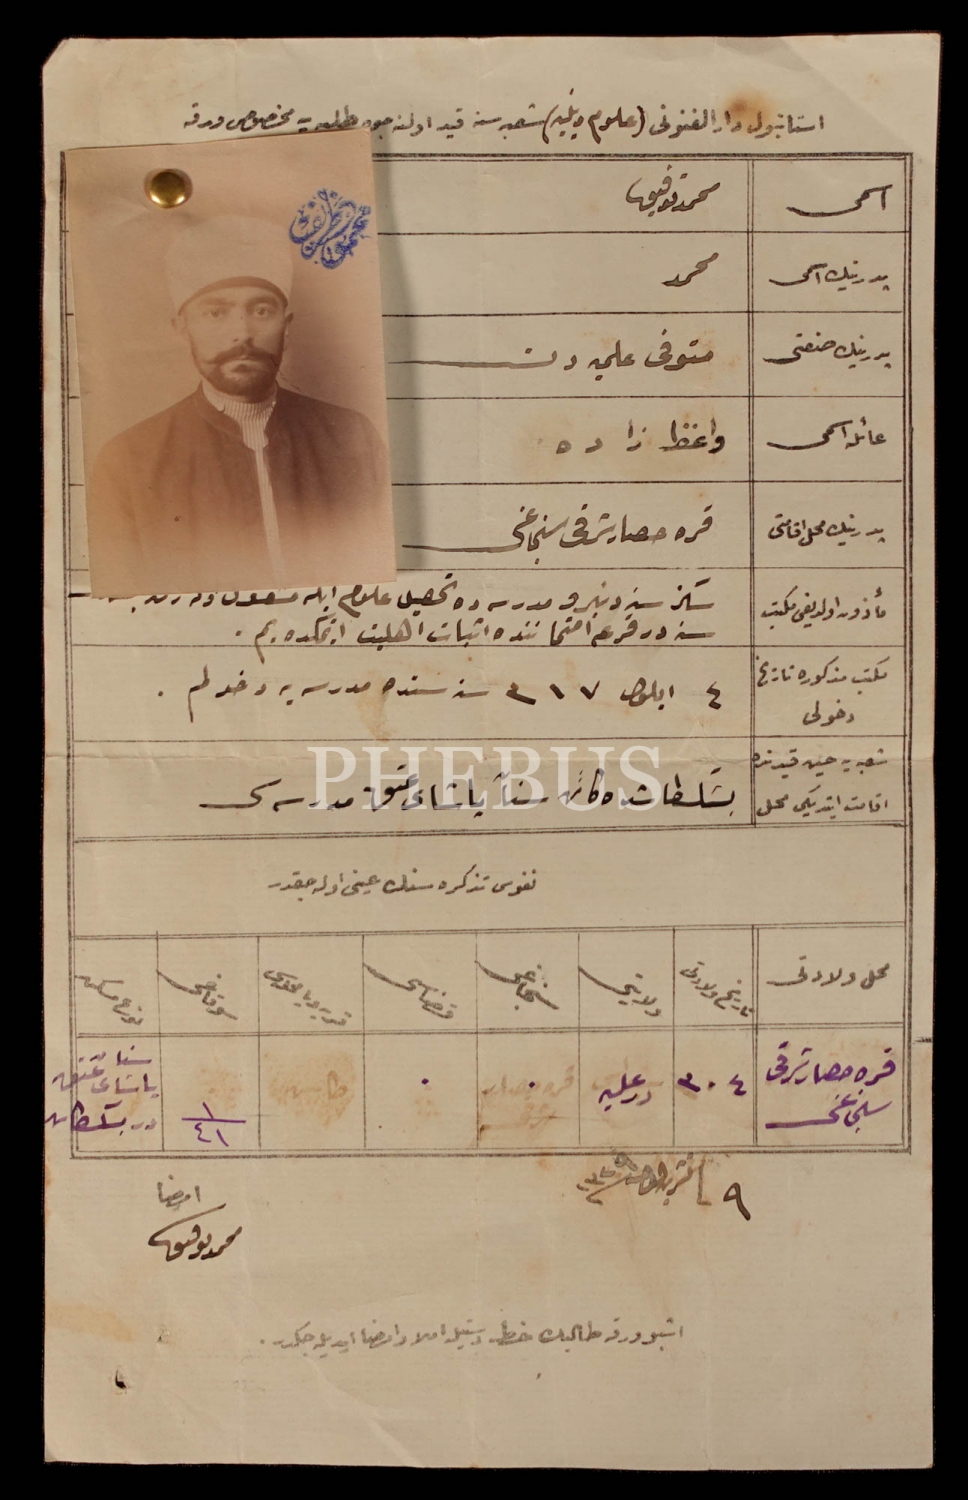 استانبول دار الفنونی (علوم دینیه) شعبه سنه قید اولنه جق طلبه یه مخصوص ورقه
اسمی
محمد توفیق
پدرینك اسمی
محمد
پدرینك صنعتی
متوفی علمیه دن
عائله اسمی
واعظ زاده
پدرینك محل اقامتی
قره حصار شرقی سنجاغی
مأذون اولدیغی مكتب
سكز سنه دنبرو مدرسه ده تحصیل علوم ایله مشغول
سنه در قرعه امتحاننده اثبات اهلیت ایتمكده یم .
مكتب مذكوره تاریخ
دخولی
٤ ایلول ٣١٧ سنه سنده مدرسه یه دخولم .
شعبه یه حین قیدنده
اقامت ایتدیكی محل
بشكطاشده كائن سنان پاشای عتیق مدرسه سی
PHEBUS
نفوس تذكره سنك عینی اوله جقدر
محل ولادتی
تاریخ ولادتی
ولایتی
سنجاغی
قضاسی
قریه ویا محله سی
سوقاغی
نوع مسكن
قره حصار شرقی
سنجاغی
٣٠٤
در علیه
١
٤١
سنان
پاشای عتیق
در بشكطاش
٩ تشرین اول
امضا
محمد توفیق
اشبو ورقه طالبك خط دستیله املا و امضا ایدیله جكدر .